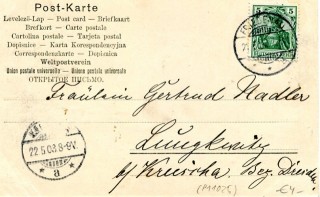 Post-Karte
Levelező-Lap – Post card – Briefkaart
Brefkort – Carte postale
Cartolina postale – Tarjeta postal
Dopisnice – Karta Korespondencyjna
Correspondenzkarte – Dopisnica
Weltpostverein
Union postale universelle – Unione postale universale
ОТКРЫТОЕ ПИСЬМО.
5 5
Fräulein Gertrud Nadler
Lungkwitz
b/ Kreischa Bez. Dresden
22.5.03.8-9V.
a
(P11025)
€4,-